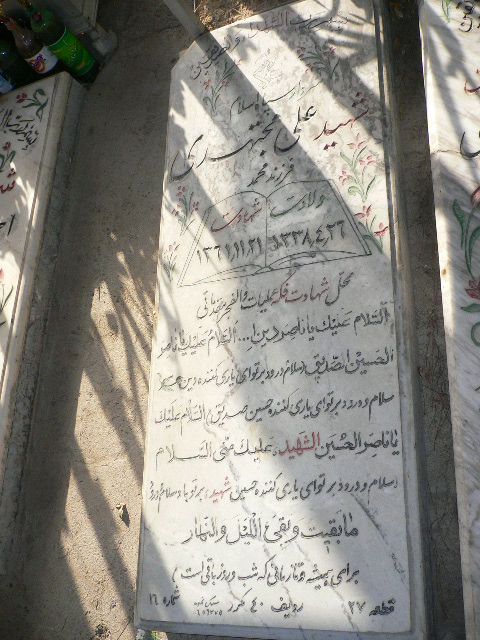 سردار سپاه اسلام
شهید علی تجهدی
فرزند محمد
ولادت شهادت
۱۳۳۸,۴,۲۶ ۱۳۶۱,۱۱,۲۱
محل شهادت فکه عملیات والفجر مقدماتی
السلام علیک یا ناصر دین ا... السلام علیک یا ناصر
الحسین الصدیق (سلام و درود بر تو ای یاری کننده دین
سلام و درود بر تو ای یاری کننده حسین صدیق) السلام علیک
یا ناصر الحسین الشهید، علیک منی السلام
(سلام و درود بر تو ای یاری کننده حسین شهید، بر تو باد سلام و
ما بقیت و بقی اللیل و النهار
برای همیشه و تا زمانی که شب و روز باقی است)
قطعه ۲۷ ردیف ۴۰ مکرر شماره ۱۶